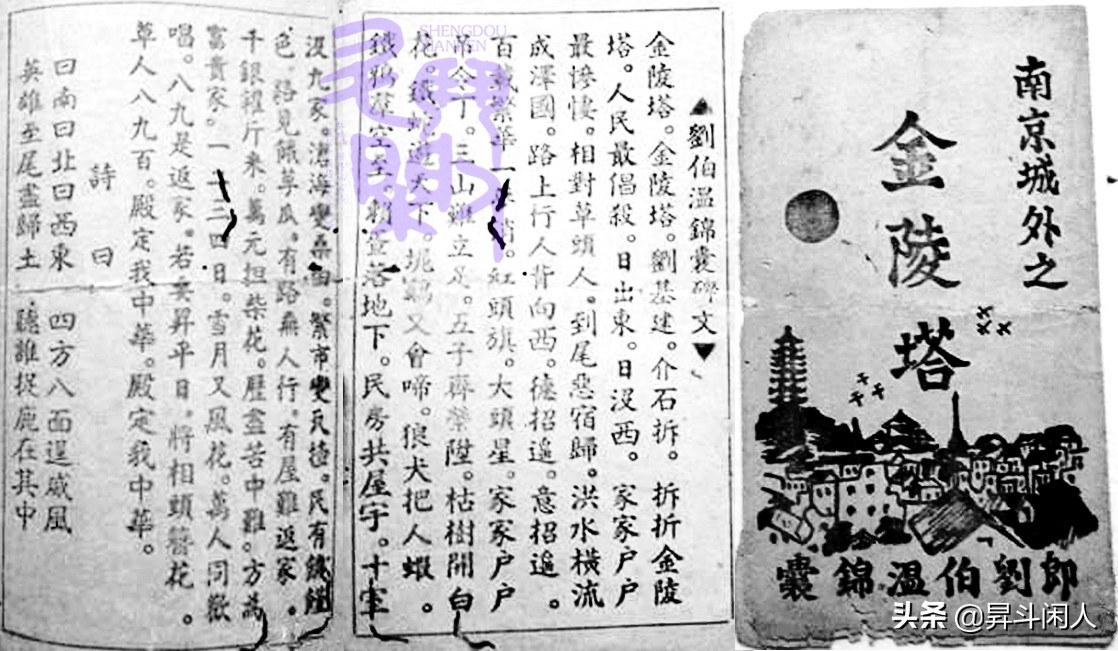 南京城外之
金陵塔
即劉伯溫錦囊
▲劉伯溫錦囊碑文▼
金陵塔。金陵塔。劉基建。介石拆。拆折金陵
塔。人民最倡殺。日出東。日沒西。家家戶戶
最慘悽。相對草頭人。到尾惡宿歸。洪水橫流
成澤國。路上行人背向西。德招遥。意招遥。
百載繁華一 紅頭旗。大頭星。家家戶戶
吊令丁。三山難立足。五子齊榮陞。枯樹開白
花。鐵蛇遊天下。坭鷄又會啼。狼犬把人蝦。
鐵鴉羣空 落地下。民房共屋宇。十室
沒九家。滄海變桑田。繁市變瓦渣。民有饑饉
色。路見餓莩瓜。有路無人行。有屋難返家。
千銀糴斤米。萬元担柴花。歷盡苦中難。方為
富貴家。一 三四日。雪月又風花。萬人同歡
唱。八九是返家。若要昇平日。將相頭簪花。
草人八九百。殿定我中華。殿定我中華。
詩曰
曰南曰北曰西東 四方八面逞威風
英雄至尾盡歸土 聽誰捉鹿在其中
SHENGDOU
XIANREN
头条 @昇斗闲人